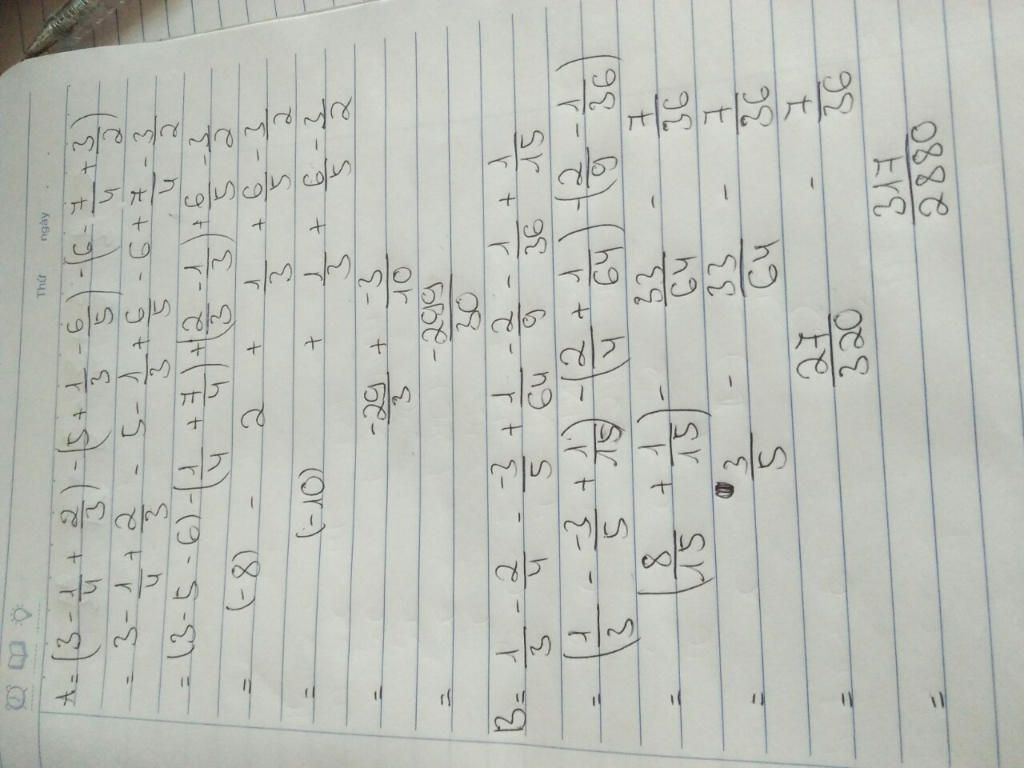 Thứ ngày
A = (3 - 1/4 + 2/3) - (5 + 1/3 - 6/5) - (6 - 7/4 + 3/2)
= 3 - 1/4 + 2/3 - 5 - 1/3 + 6/5 - 6 + 7/4 - 3/2
= (3 - 5 - 6) - (1/4 + 7/4) + (2/3 - 1/3) + 6/5 - 3/2
= (-8) - 2 + 1/3 + 6/5 - 3/2
= (-10) + 1/3 + 6/5 - 3/2
= -29/3 + -3/10
= -299/30
B = 1/3 - 2/4 - -3/5 + 1/64 - 2/9 - 1/36 + 1/15
= (1/3 - -3/5 + 1/15) - (2/4 + 1/64) - (2/9 - 1/36)
= (8/15 + 1/15) - 33/64 - 7/36
= 3/5 - 33/64 - 7/36
= 27/320 - 7/36
= 317/2880